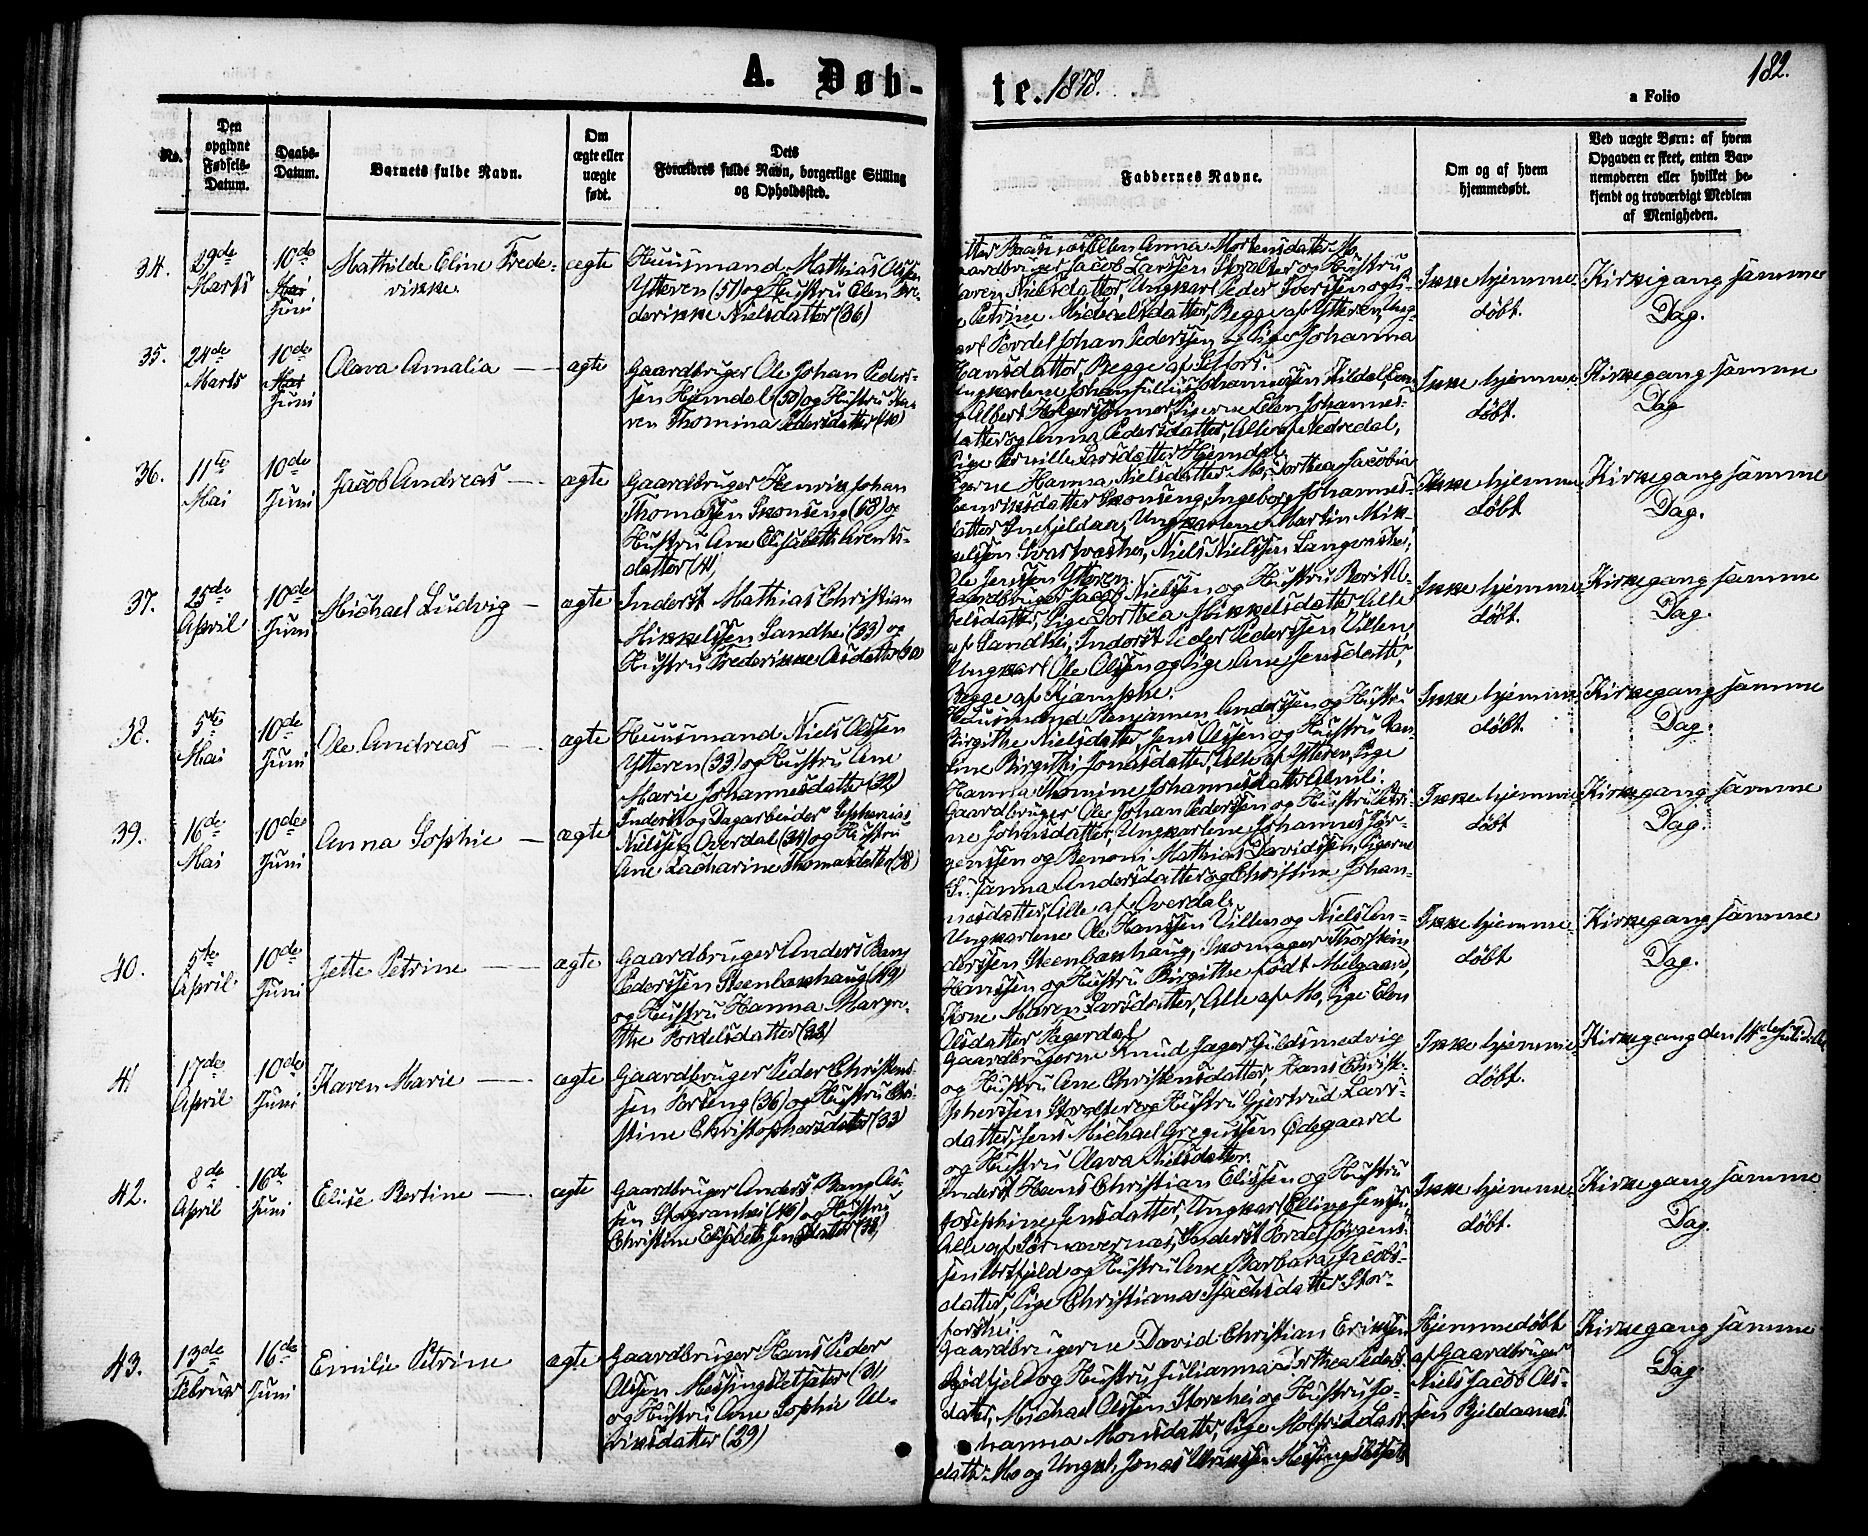 A. Døb-
te. 1878.
182.
a Folio
No.
Den
opgivne
Fødsels-
Datum.
Daabs-
Datum.
Barnets fulde Navn.
Om
ægte eller
uægte
født.
Dets
Forældres fulde Navn, borgerlige Stilling
og Opholdssted.
Faddernes Navne.
Om og af hvem
hjemmedøbt.
Ved uægte Børn: af hvem
Opgaven er skeet, enten Bar-
nemoderen eller hvilket be-
kjendt og troværdigt Medlem
af Menigheden.
34.
29de
Marts
10de
Mai
Juni
Mathilde Eline Frede-
rikke
ægte
Huusmand Mathias Olssen
Ytteren (51) og Hustru Elen Fre-
derikke Nielsdatter (36)
Ellen Anna Mortensdatter Mo
Jacob Larssen Storalter og Hustru
Maren Nielsdatter, Ungkarl Peder Iverssen og Pi-
ge Petrine Michaelsdatter, Begge af Ytteren, Ung-
karl Pordel Johan Pederssen og Pige Johanna
Hansdatter, Begge af Selfors.
Ikke hjemme-
døbt.
Kirkegang samme
Dag.
35.
24de
Marts
10de
Mai
Juni
Olava Amalia
ægte
Gaardbruger Ole Johan Peders-
sen Hjemdal (50) og Hustru Ka-
ren Thomina Pedersdatter (40)
Ungkarlene Johan Julius Johannessen Kildal, Even
og Albert Holgerssønner, Pigerne Elen Johannes-
datter og Anna Pedersdatter, Alle af Nedredal,
Pige Pernille Larsdatter Hjemdal
Ikke hjemme-
døbt.
Kirkegang samme
Dag
36.
11te
Mai
10de
Juni
Jacob Andreas
ægte
Gaardbruger Henrik Johan
Thomassen Skonseng (58) og
Hustru Ane Elisabeth Arents-
datter (41)
Pigerne Hanna Nielsdatter Mo, Dorthea Jacobia
Henriksdatter Skonseng, Ingeborg Johannes-
datter Snefjeldaa, Ungkarlene Martin Mik-
kelssen Svartvashei, Niels Nielssen Langvashei,
Ole Jenssen Ytteren.
Ikke hjemme-
døbt.
Kirkegang samme
Dag.
37.
25de
April
10de
Juni
Michael Ludvig
ægte
Inderst Mathias Christian
Mikkelssen Sandhei (33) og
Hustru Frederikke Olsdatter (30)
Gaardbruger Jacob Nielssen og Hustru Berit A-
belsdatter, Pige Dorthea Mikkelsdatter Alle
af Sandhei, Inderst Peder Pederssen Villen,
Ungkarl Ole Olssen og Pige Ane Jensdatter,
Begge af Kjemphei.
Ikke hjemme-
døbt.
Kirkegang samme
Dag.
38.
5te
Mai
10de
Juni
Ole Andreas
ægte
Huusmand Niels Olssen
Ytteren (33) og Hustru Ane
Marie Johannesdatter (32)
Huusmand Benjamin Anderssen og Hustru
Birgithe Nielsdatter, Jens Olssen og Hustru Kar-
line Birgithe Jonasdatter, Alle af Ytteren, Pige
Hanna Thomine Johannesdatter Almli.
Ikke hjemme-
døbt.
Kirkegang samme
Dag.
39.
16de
Mai
10de
Juni
Anna Sophie
ægte
Inderst og Dagarbeider Sephanias
Nielssen Overdal (34) og Hustru
Ane Zacharine Thomasdatter (38)
Gaardbruger Ole Johan Pederssen og Hustru Petri-
ne Johnsdatter, Ungkarlene Johannes Jør-
genssen og Benoni Mathias Davidssen, Pigerne
Susanna Andersdatter og Christine Johan-
nesdatter, Alle af Overdal.
Ikke hjemme-
døbt
Kirkegang samme
Dag.
40.
5te
April.
10de
Juni
Jette Petrine
ægte
Gaardbruger Anders Bang
Pederssen Steenbækhaug (49)
og Hustru Hanna Margre-
the Pordelsdatter (32)
Ungkarlene Ole Hanssen Villen og Niels An-
derssen Steenbækhaug, Skomager Thorstein
Hanssen og Hustru Birgithe født Melgaard,
Kone Maren Larsdatter, Alle af Mo, Pige Elen
Olsdatter Fagerdal
Ikke hjemme-
døbt
Kirkegang samme
Dag.
41
17de
April
10de
Juni
Karen Marie
ægte
Gaardbruger Peder Christens-
sen Forseng (36) og Hustru Chri-
stine Christophersdatter (33)
Gaardbrugerne Knud Jager Guldsmedvig
og Hustru Ane Christensdatter, Hans Christo-
pherssen Storalter og Hustru Gjertrud Lars-
datter, Jens Michael Gregussen Ødegaard
og Hustru Olava Nielsdatter.
Ikke hjemme-
døbt.
Kirkegang den 14de Juli
42.
8de
April
16de
Juni
Elise Bertine
ægte
Gaardbruger Anders Bang Ol-
sen Storgranhei (46) og Hustru
Christine Elisabeth Jensdatter (38)
Inderst Hans Christian Elissen og Hustru
Josephine Jensdatter, Ungkarl Elling Jenssen,
Alle af Sørnævernæs, Inderst Pordel Jørgens-
sen Ørtfjeld og Hustru Ane Barbara Jacobs-
datter, Pige Christiana Isachsdatter Stor-
forshei.
Ikke hjemme-
døbt.
Kirkegang samme
Dag.
43.
13de
Februar
16de
Juni
Emilie Petrine
ægte
Gaardbruger Hans Peder
Olssen Messingsletfater (31)
og Hustru Ane Sophie Ul-
riksdatter (29)
Gaardbrugerne David Christian Erikssen
Rødfjeld og Hustru Julianna Dorthea Peders-
datter, Michael Olssen Storehei og Hustru Jo-
hanna Monsdatter, Pige Molfrid Lars-
datter Mo og Ungk. Jonas Ulrikssen Messingsletfater
Hjemmedøbt
af Gaardbruger
Niels Jacob Ols-
sen Bjeldaanes.
Kirkegang samme
Dag